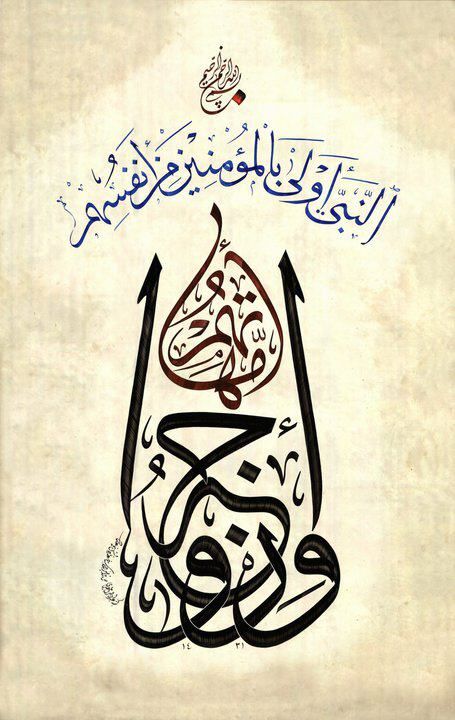 بسم الله الرحمن الرحيم
النَّبِيُّ أَوْلَىٰ بِالْمُؤْمِنِينَ مِنْ أَنفُسِهِمْ
وأزواجه أمهاتهم
١٤٣١